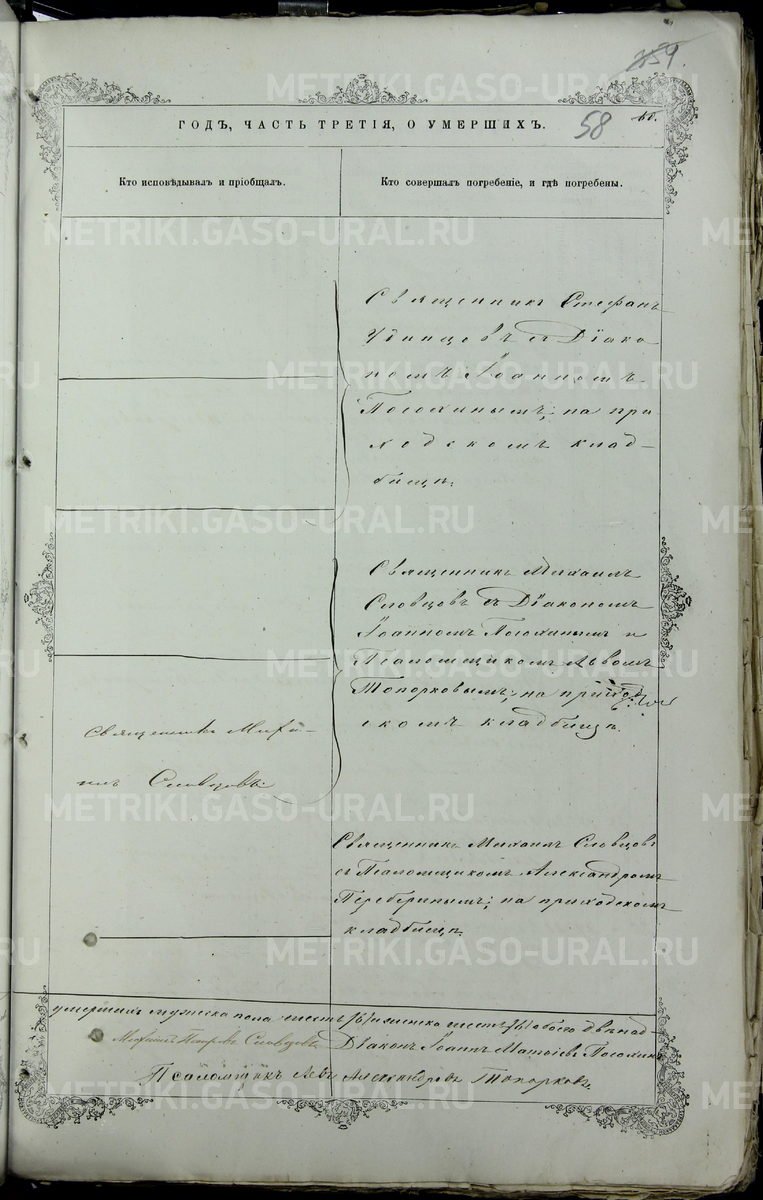 METRIKI.GASO-URAL.RU
58
ГОДЪ, ЧАСТЬ ТРЕТІЯ, О УМЕРШИХЪ.
Кто исповѣдывалъ и пріобщалъ.
Кто совершалъ погребеніе, и гдѣ погребены.
Священникъ Стефанъ
Удинцовъ съ Діако-
номъ Іоанномъ
Посохинымъ; на при
ходскомъ клад-
бищѣ.
Священникъ Михаилъ
Словцовъ съ Діакономъ
Іоанномъ Посохинымъ и
Псаломщикомъ Львомъ
Топорковымъ; на приход
скомъ кладбищѣ.
Священникъ Миха-
илъ Словцовъ
Священникъ Михаилъ Словцовъ
съ Псаломщикомъ Александромъ
на приходскомъ
кладбищѣ
умершихъ мужеска пола шесть /6/ женска шесть /6/ обоего двѣнад-
Петровъ Словцовъ Діаконъ Іоаннъ Посохинъ
Псаломщикъ Левъ Александровъ Топорковъ.